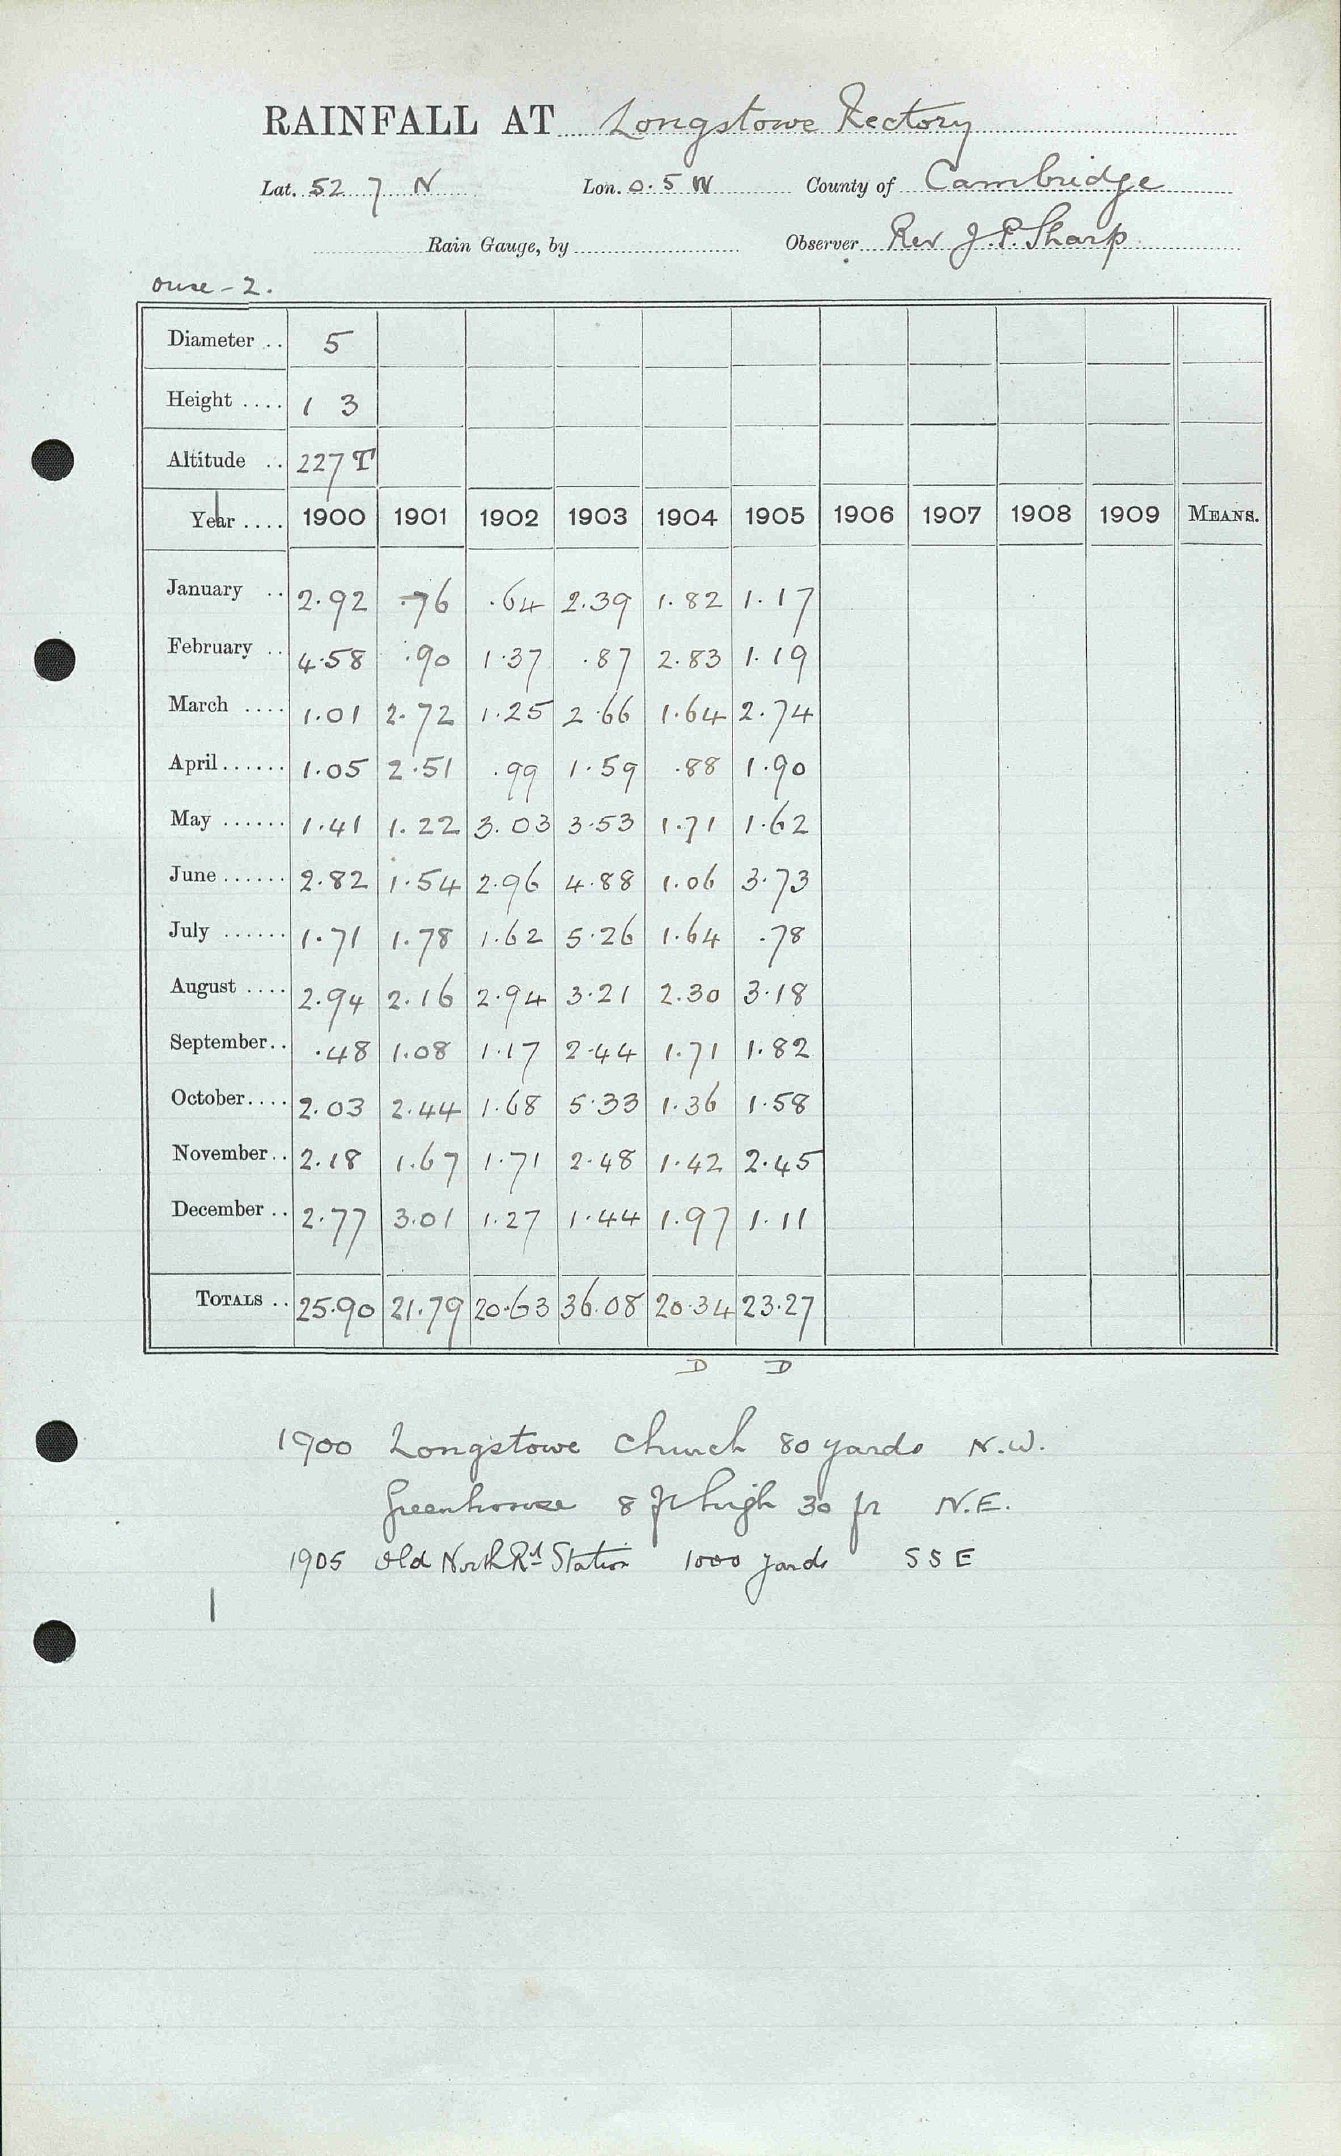 RAINFALL AT Longstowe Rectory
Lat. 52 7 N Lon. 0.5 W County of Cambridge
Rain Gauge, by Observer Rev J. P. Sharp
Ouse - 2.
Diameter .. 5
Height .... 1 3
Altitude .. 227 T
Year .... 1900 1901 1902 1903 1904 1905 1906 1907 1908 1909 MEANS.
January .. 2.92 .76 .64 2.39 1.82 1.17
February .. 4.58 .90 1.37 .87 2.83 1.19
March .... 1.01 2.72 1.25 2.66 1.64 2.74
April...... 1.05 2.51 .99 1.59 .88 1.90
May ...... 1.41 1.22 3.03 3.53 1.71 1.62
June...... 2.82 1.54 2.96 4.88 1.06 3.73
July ...... 1.71 1.78 1.62 5.26 1.64 .78
August .... 2.94 2.16 2.94 3.21 2.30 3.18
September.. .48 1.08 1.17 2.44 1.71 1.82
October.... 2.03 2.44 1.68 5.33 1.36 1.58
November.. 2.18 1.67 1.71 2.48 1.42 2.45
December .. 2.77 3.01 1.27 1.44 1.97 1.11
TOTALS .. 25.90 21.79 20.63 36.08 20.34 23.27
D D
1900 Longstowe Church 80 yards N.W.
Greenhouse 8 ft high 30 ft N.E.
1905 Old North Rd Station 1000 yards S S E